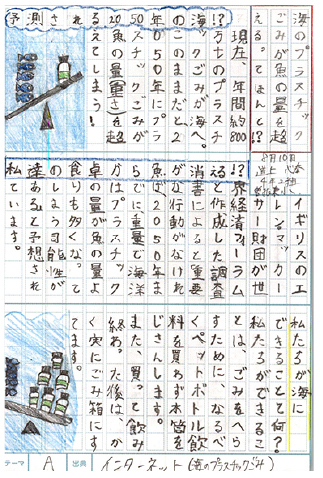 海のプラスチック
ごみが魚の量をこ
える。てほんと!?
予測される2050年の海!?
現在、年間約800
万tのプラスチ
ックごみが海へ。
このままだと2
050年にプラ
スチックごみが
魚の量(重さ)を超
えてしまう!
8月10日
イギリスのエ
レン・マッカー
サー財団が世
私達の食卓から魚が消える!?
界経済フィーラム
と作成した調査
書によると重要
な行動がなけれ
ば2050年ま
でに重量で海洋
はプラスチック
の量が魚の量よ
りも多くなって
しまう可能性が
あると予想され
ています。
私たちが海に
できることって何?
私たちができるこ
とは、ごみをへら
すために、なるべ
くペットボトル飲
料を買わず水筒を
じさんします。
また、買って飲み
終わった後は、か
く実にごみ箱にす
てます。
テーマ A 出典 インターネット(海のプラスチックごみ)